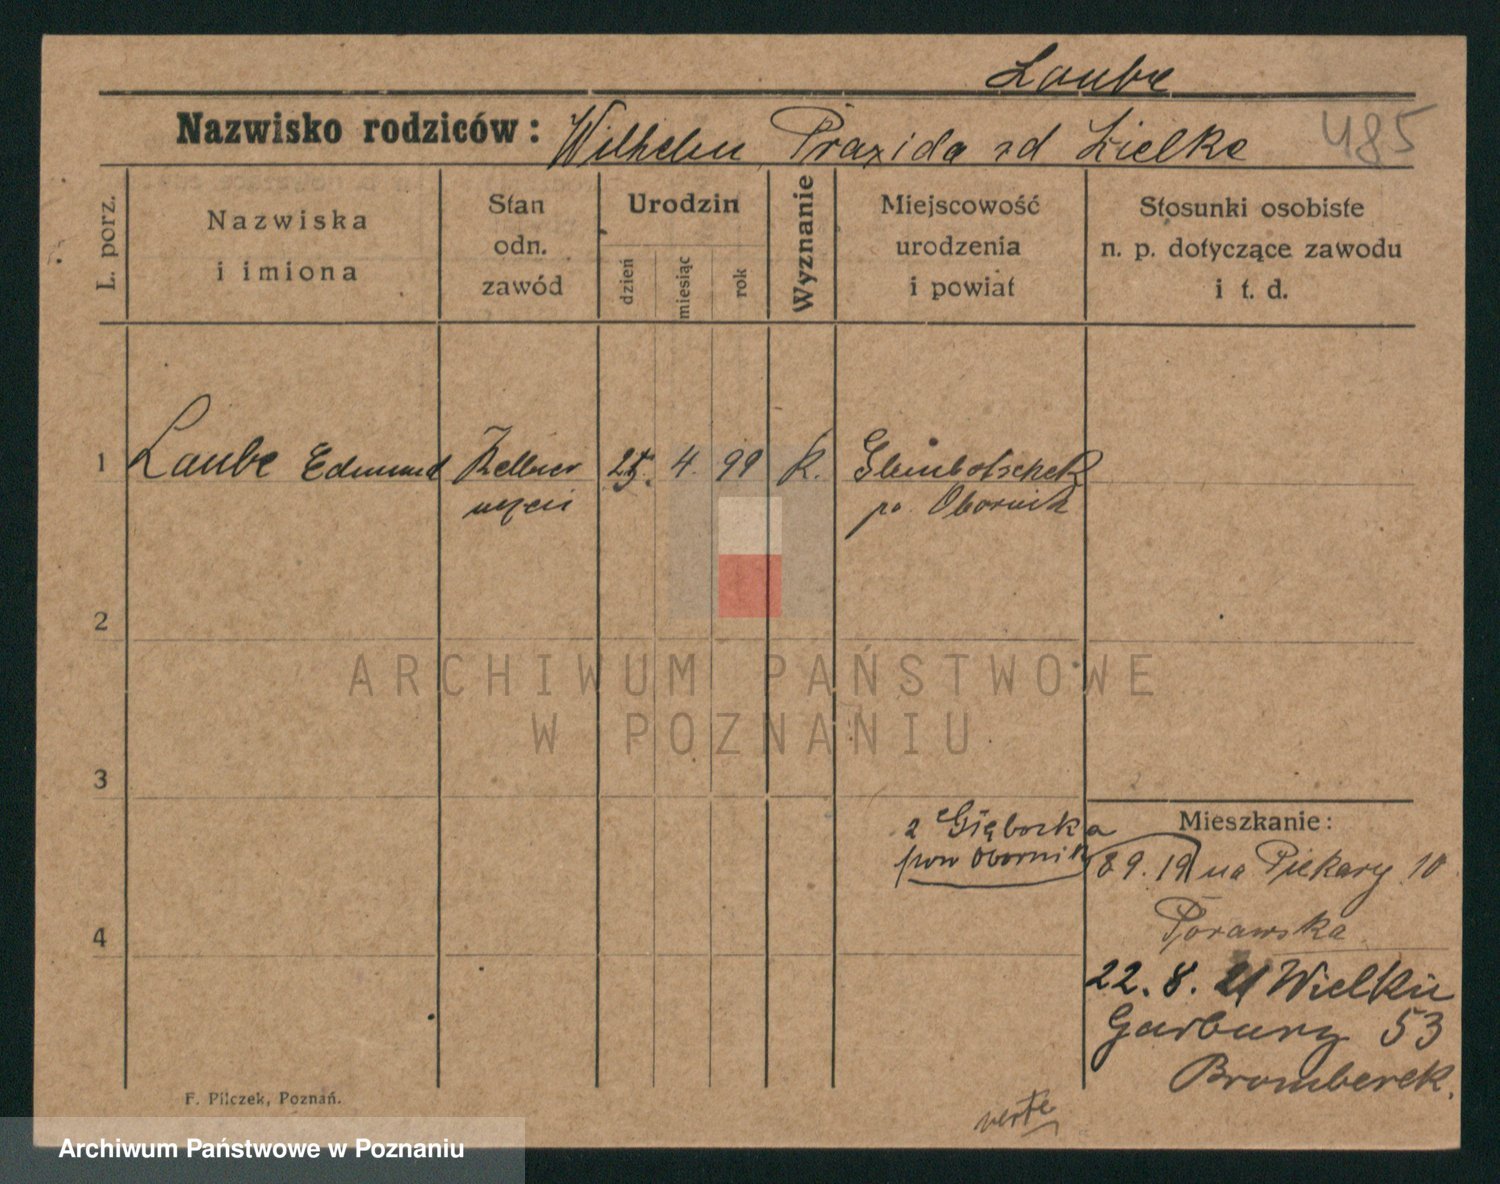 Laube
Nazwisko rodziców: Wilhelm, Praxida zd Zielke 485
L. porz.
Nazwiska
i imiona
Stan
odn.
zawód
Urodzin
dzień
miesiąc
rok
Wyznanie
Miejscowość
urodzenia
i powiat
Stosunki osobiste
n. p. dotyczące zawodu
i t. d.
1 Laube Edmund Kellner 25. 4. 99 k.
po Obornik
2
ARCHIWUM PAŃSTWOWE
W POZNANIU
3
z Głębocka
pow Obornik
Mieszkanie:
89.19 na Piekary 10
4
22. 8. 21 Wielkie
Garbary 53
Bromberek.
F. Pilczek, Poznań.
verte
Archiwum Państwowe w Poznaniu